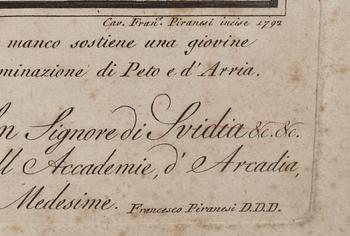 Cav. Franc.º Piranesi incise 1792
manco sostiene una giovine
minazione di Peto e d'Arria.
n Signore di Svidia &c. &c.
ll Accademie, d' Arcadia,
Medesime. Francesco Piranesi D.D.D.